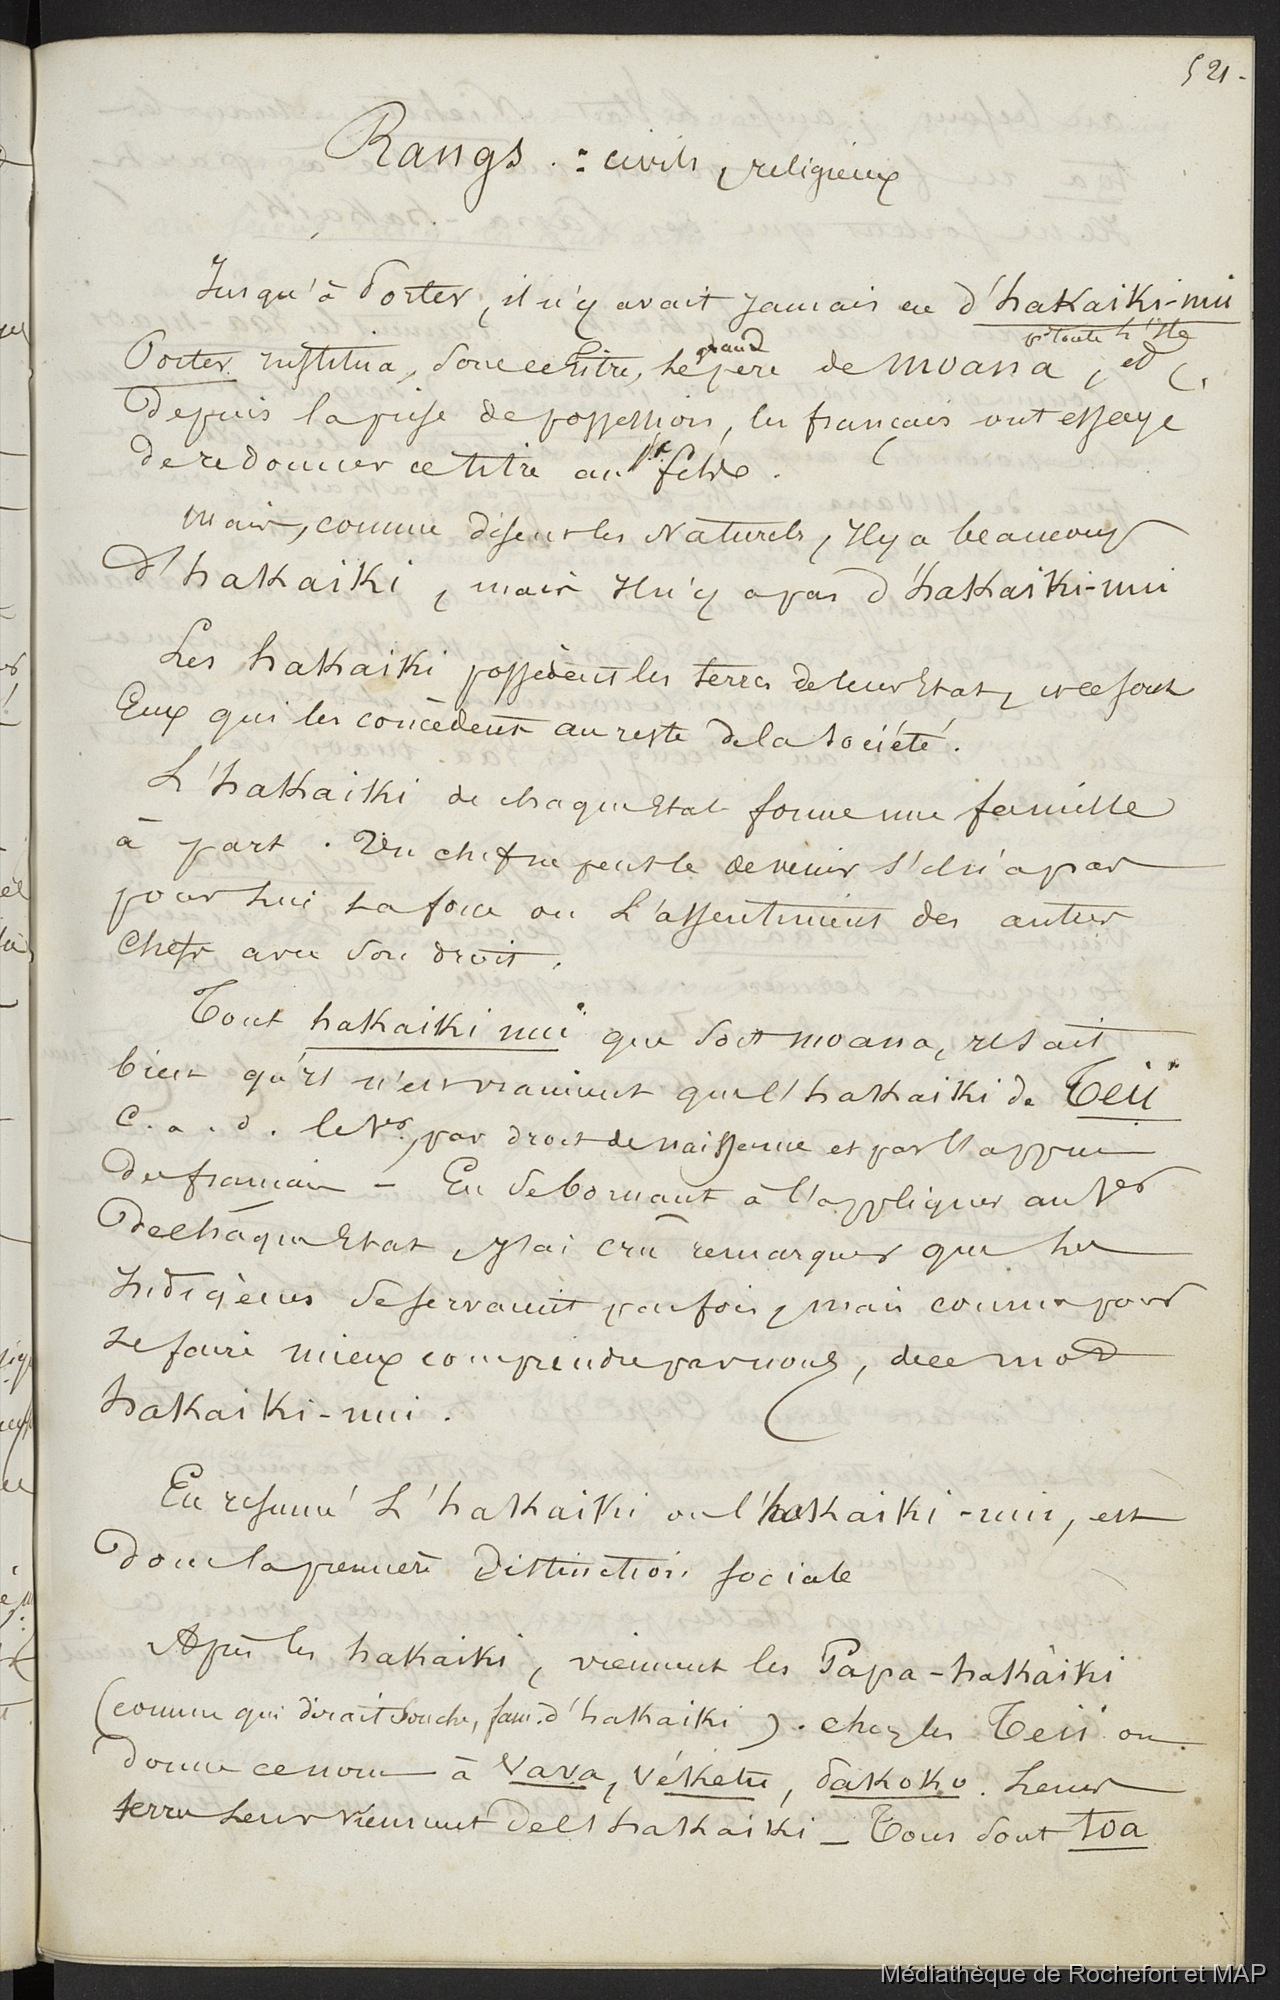 521.
Rangs : civils, religieux
Jusqu'à Porter, il n'y avait jamais eu d'hakaiki-nui
pr toute l'île
Porter institua, sous ce titre, le grand père de Moana, et
Depuis la prise de possession, les français ont essayé
de redonner ce titre au pt fils.
Mais, comme disent les Naturels, Il y a beaucoup
d'hakaiki, mais Il n'y a pas d'hakaiki-nui
Les hakaiki possèdent les terres de leur Etat, et ce sont
Eux qui les concèdent au reste de la société.
L'hakaiki de chaque Etat forme une famille
à part. Un chef ne peut le devenir s'il n'a pas
pour lui la force ou L'assentiment des autres
Chefs avec son droit.
Tout hakaiki nui que soit Moana, il sait
bien qu'il n'est vraiment que l'hakaiki de Teii
c. a. d. le 1er, par droit de naissance et par l'appui
des français — En se bornant à l'appliquer au 1er
De chaque Etat, J'ai crû remarquer que les
Indigènes se servaient parfois, mais comme pour
se faire mieux comprendre par nous, de ce mot
hakaiki-nui.
En résumé L'hakaiki ou l'hakaiki-nui, est
donc la première Distinction sociale
Après les hakaiki, viennent les Papa-hakaiki
(comme qui dirait souche, fam. d'hakaiki). Chez les Teii on
donne ce nom à Vava, Vékétu, Pakoko. Leurs
terres Leur viennent De l'hakaiki — Tous sont toa
Médiathèque de Rochefort et MAP